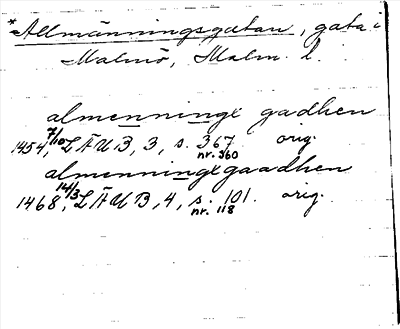 *Allmänningsgatan, gata i
Malmö, Malm. l.
almenninge gadhen
1454 7/10, LÄUB, 3, s. 367. orig.
nr. 360
almenninge gaadhen
1468 14/3, LÄUB, 4, s. 101. orig.
nr. 118